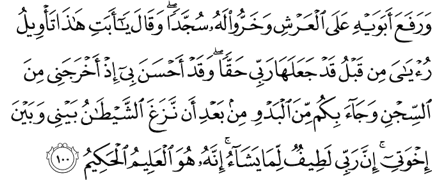 وَرَفَعَ أَبَوَيْهِ عَلَى ٱلْعَرْشِ وَخَرُّوا۟ لَهُۥ سُجَّدًا ۖ وَقَالَ يَٰٓأَبَتِ هَٰذَا تَأْوِيلُ
رُءْيَٰىَ مِن قَبْلُ قَدْ جَعَلَهَا رَبِّى حَقًّا ۖ وَقَدْ أَحْسَنَ بِىٓ إِذْ أَخْرَجَنِى مِنَ
ٱلسِّجْنِ وَجَآءَ بِكُم مِّنَ ٱلْبَدْوِ مِنۢ بَعْدِ أَن نَّزَغَ ٱلشَّيْطَٰنُ بَيْنِى وَبَيْنَ
إِخْوَتِىٓ ۚ إِنَّ رَبِّى لَطِيفٌ لِّمَا يَشَآءُ ۚ إِنَّهُۥ هُوَ ٱلْعَلِيمُ ٱلْحَكِيمُ ١٠٠